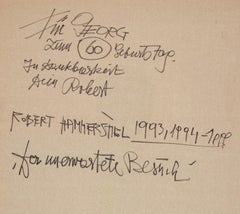 Für GEORG
zum 60 Geburtstag.
In Dankbarkeit
Dein Robert
ROBERT HAMMERSTIEL 1993, 1994-
„Der unerwartete Besuch"